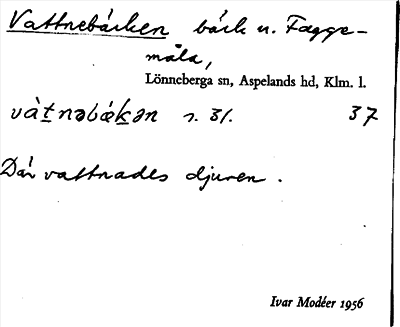 Vattnebäcken bäck n. Fagge-
måla,
Lönneberga sn, Aspelands hd, Klm. l.
vàt̠nəbǽk̠ən 1. 31. 37
Där vattnades djuren.
Ivar Modéer 1956